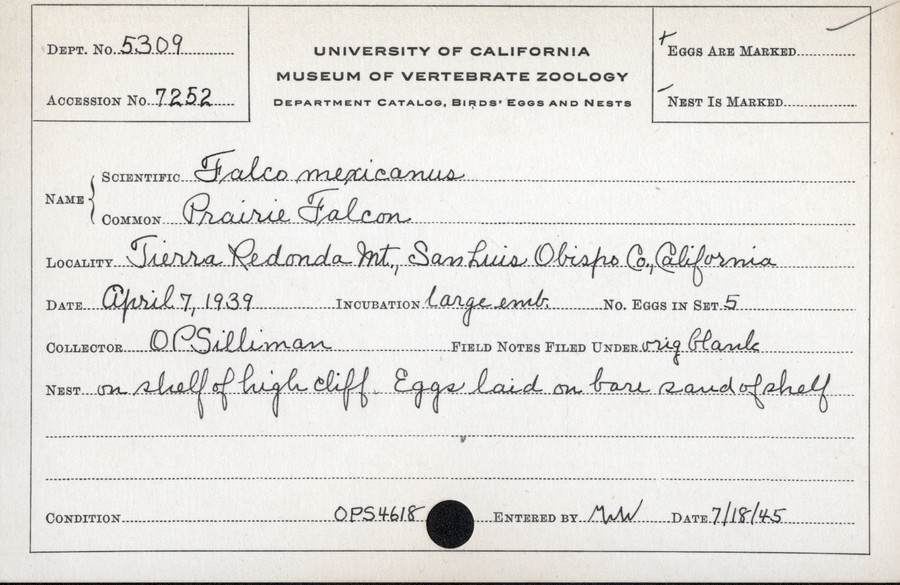 DEPT. No. 5309
ACCESSION No. 7252
UNIVERSITY OF CALIFORNIA
MUSEUM OF VERTEBRATE ZOOLOGY
DEPARTMENT CATALOG, BIRDS' EGGS AND NESTS
+ EGGS ARE MARKED
– NEST IS MARKED
NAME { SCIENTIFIC Falco mexicanus
COMMON Prairie Falcon
LOCALITY Tierra Redonda Mt., San Luis Obispo Co., California
DATE April 7, 1939 INCUBATION large emb. No. EGGS IN SET 5
COLLECTOR OPSilliman FIELD NOTES FILED UNDER orig blank
NEST on shelf of high cliff. Eggs laid on bare sand of shelf
CONDITION OPS4618 ENTERED BY MWW DATE 7/18/45